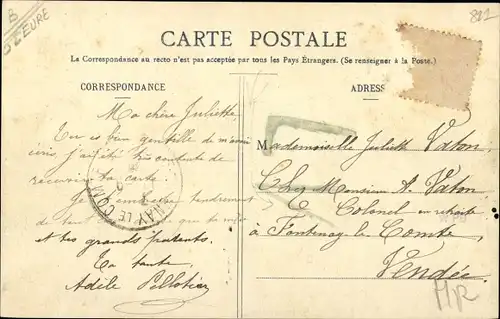 B
S/EURE
881
CARTE POSTALE
La Correspondance au recto n'est pas acceptée par tous les Pays Étrangers. (Se renseigner à la Poste.)
CORRESPONDANCE
ADRESS
Ma chère Juliette
Tu es bien gentille de m'avoir
j'ai été très contente de
recevoir ta carte.
Je t'embrasse tendrement
de
et tes grands parents.
Ta tante,
Adèle Pellotier
NAY LE COM
Mademoiselle Juliette Vaton
Chez Monsieur A. Vaton
Colonel en retraite
à Fontenay-le-Comte,
Vendée
MR